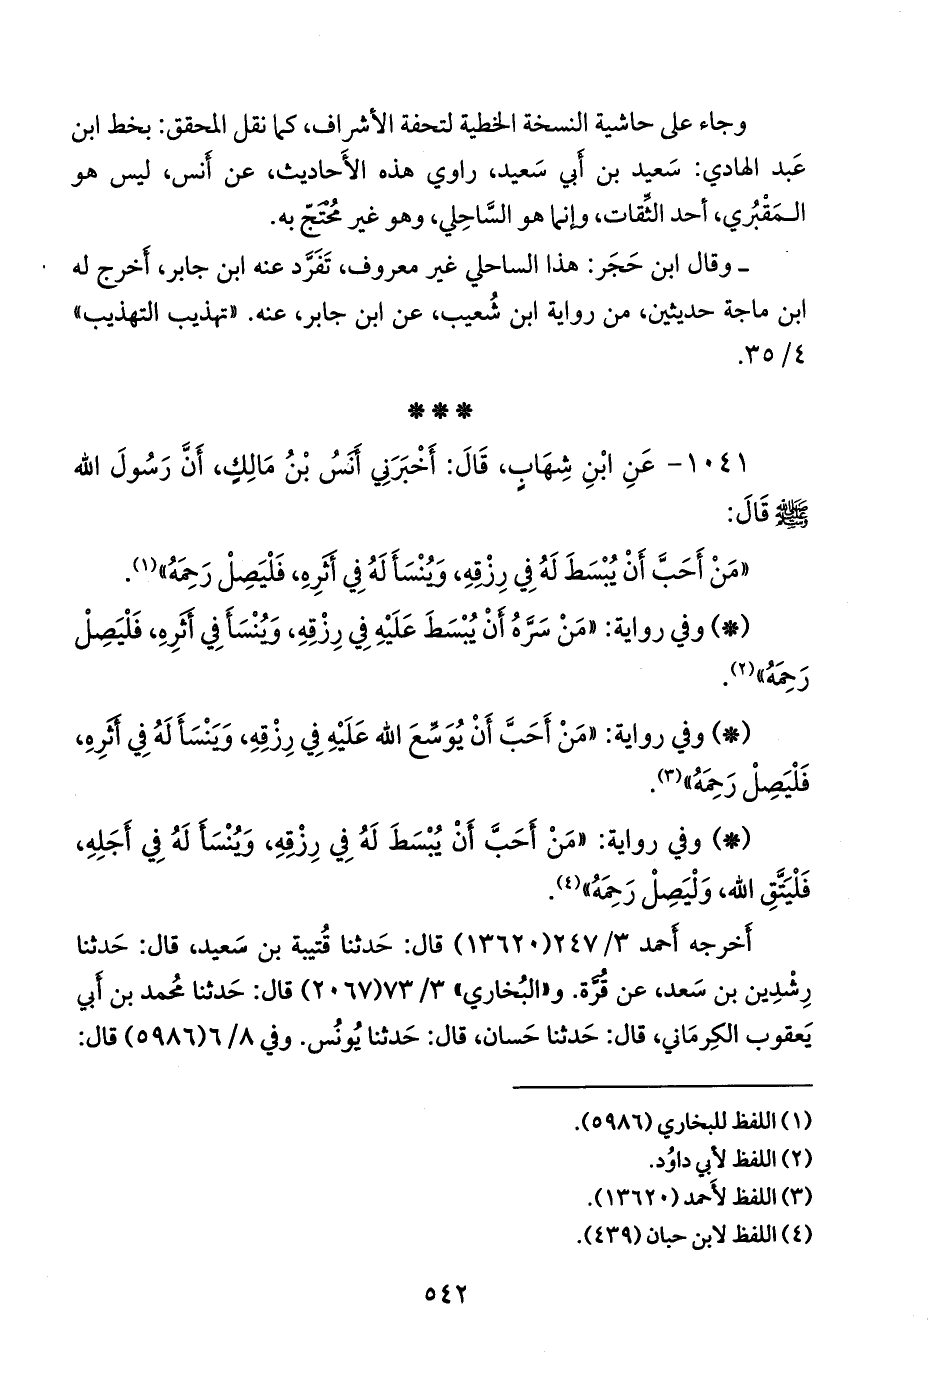 وجاء على حاشية النسخة الخطية لتحفة الأشراف، كما نقل المحقق: بخط ابن
عَبد الهادي: سَعيد بن أَبي سَعيد، راوي هذه الأَحاديث، عن أَنس، ليس هو
الـمَقْبُري، أَحد الثِّقات، وإِنما هو السَّاحِلي، وهو غير مُحْتَجّ به.
ـ وقال ابن حَجَر: هذا الساحلي غير معروف، تَفَرَّد عنه ابن جابر، أَخرج له
ابن ماجة حديثين، من رواية ابن شُعيب، عن ابن جابر، عنه. «تهذيب التهذيب»
٤/ ٣٥.
***
١٠٤١- عَنِ ابْنِ شِهَابٍ، قَالَ: أَخْبَرَنِي أَنَسُ بْنُ مَالِكٍ، أَنَّ رَسُولَ الله
ﷺ قَالَ:
«مَنْ أَحَبَّ أَنْ يُبْسَطَ لَهُ فِي رِزْقِهِ، وَيُنْسَأَ لَهُ فِي أَثَرِهِ، فَلْيَصِلْ رَحِمَهُ»(١).
(*) وفي رواية: «مَنْ سَرَّهُ أَنْ يُبْسَطَ عَلَيْهِ فِي رِزْقِهِ، وَيُنْسَأَ فِي أَثَرِهِ، فَلْيَصِلْ
رَحِمَهُ»(٢).
(*) وفي رواية: «مَنْ أَحَبَّ أَنْ يُوَسِّعَ الله عَلَيْهِ فِي رِزْقِهِ، وَيَنْسَأَ لَهُ فِي أَثَرِهِ،
فَلْيَصِلْ رَحِمَهُ»(٣).
(*) وفي رواية: «مَنْ أَحَبَّ أَنْ يُبْسَطَ لَهُ فِي رِزْقِهِ، وَيُنْسَأَ لَهُ فِي أَجَلِهِ،
فَلْيَتَّقِ الله، وَلْيَصِلْ رَحِمَهُ»(٤).
أَخرجه أَحمد ٣/ ٢٤٧(١٣٦٢٠) قال: حَدثنا قُتيبة بن سَعيد، قال: حَدثنا
رِشْدِين بن سَعد، عن قُرَّة. و«البُخاري» ٣/ ٧٣(٢٠٦٧) قال: حَدثنا مُحمد بن أَبي
يَعقوب الكِرماني، قال: حَدثنا حَسان، قال: حَدثنا يُونُس. وفي ٨/ ٦(٥٩٨٦) قال:
(١) اللفظ للبخاري (٥٩٨٦).
(٢) اللفظ لأَبي داوُد.
(٣) اللفظ لأَحمد (١٣٦٢٠).
(٤) اللفظ لابن حبان (٤٣٩).
٥٤٢